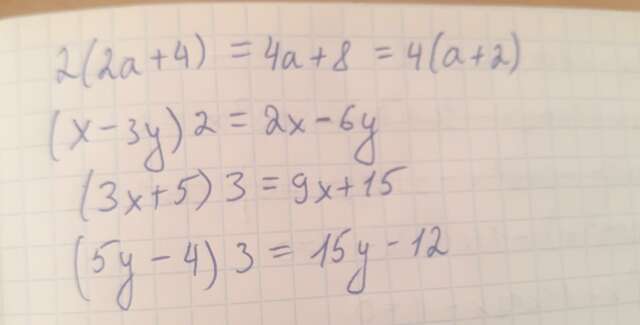 2(2a+4) = 4a+8 = 4(a+2)
(x-3y)2 = 2x-6y
(3x+5)3 = 9x+15
(5y-4)3 = 15y-12